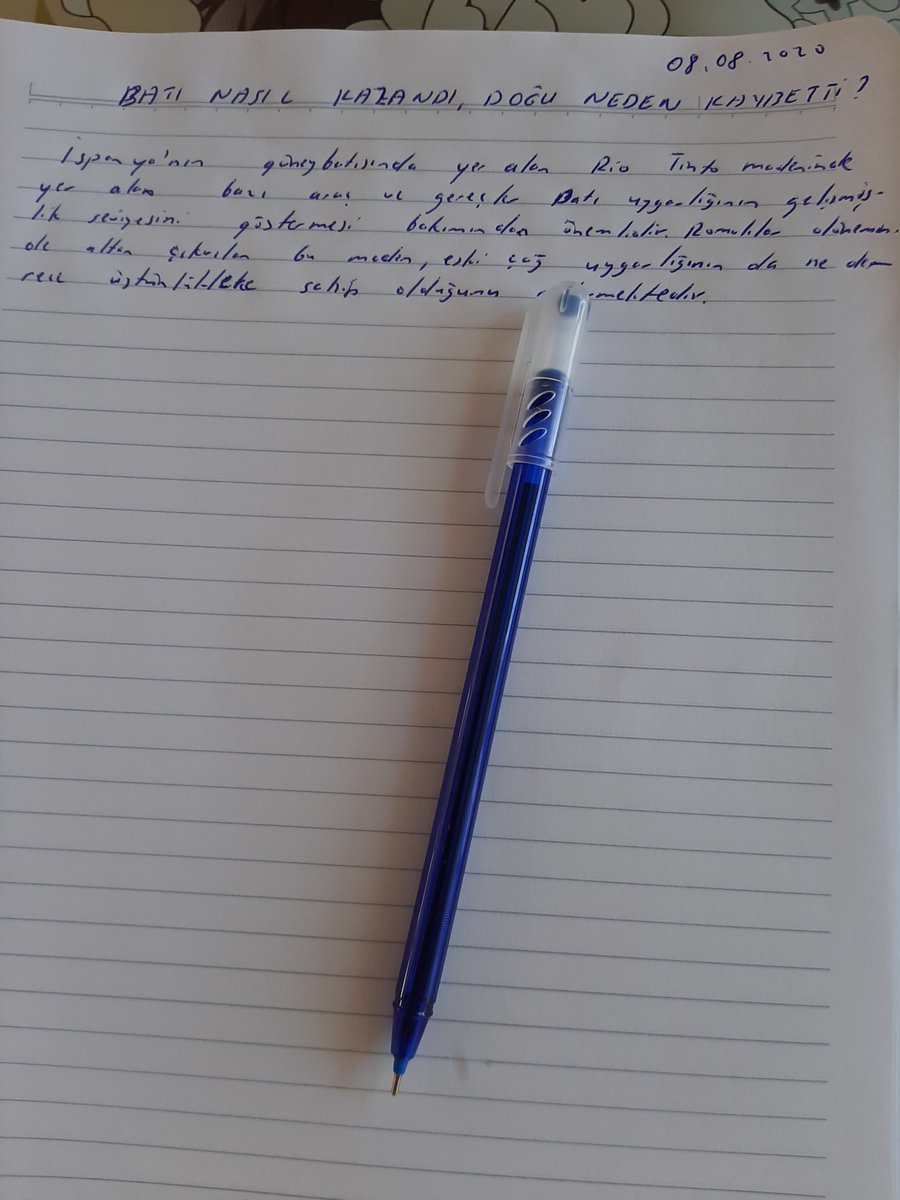 08.08.2020
BATI NASIL KAZANDI, DOĞU NEDEN KAYBETTİ?
İspanya'nın güneybatısında yer alan Rio Tinto madeninde
yer alan bazı araç ve gereçler Batı uygarlığının gelişmiş-
lik seviyesini göstermesi bakımından önemlidir. Romalılar dönemin-
de altın çıkarılan bu maden, eski çağ uygarlığının da ne dere
rece üstünlüklere sahip olduğunu